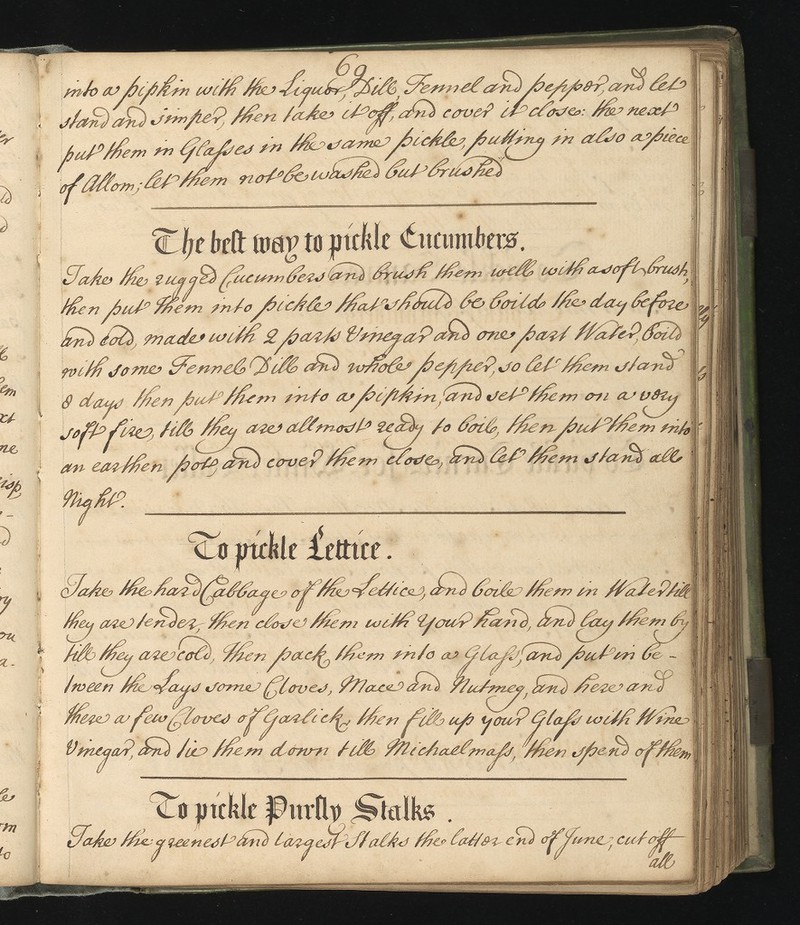 69
into a pipkin with the Liquor, Dill, Fennel and pepper, and let
stand and simper, then take it off, and cover it close: the next
put them in Glasses in the same pickle, putting in also a piece
of Allom; let them not be washed but brushed
The best way to pickle Cucumbers.
Take the rugged Cucumbers and brush them well with a soft brush,
then put them into pickle that should be boild the day before
and cold, made with 2 parts Vinegar and one part Water, boild
with some Fennel Dill and whole pepper, so let them stand
8 days then put them into a pipkin, and set them on a very
soft fire, till they are allmost ready to boil, then put them into
an earthen pot and cover them close, and let them stand all
Night.
To pickle Lettice.
Take the hard Cabbage of the Lettice, and boile them in Water till
they are tender, then close them with your hand, and lay them by
till they are cold, then pack them into a Glass, and put in be-
tween the Lays some Cloves, Mace and Nutmeg, and here and
there a few Cloves of Garlick, then fill up your Glass with Wine
Vinegar, and tie them down till Michaelmass, then spend of them
To pickle Pursly Stalks.
Take the greenest and largest Stalks the latter end of June; cut off
all